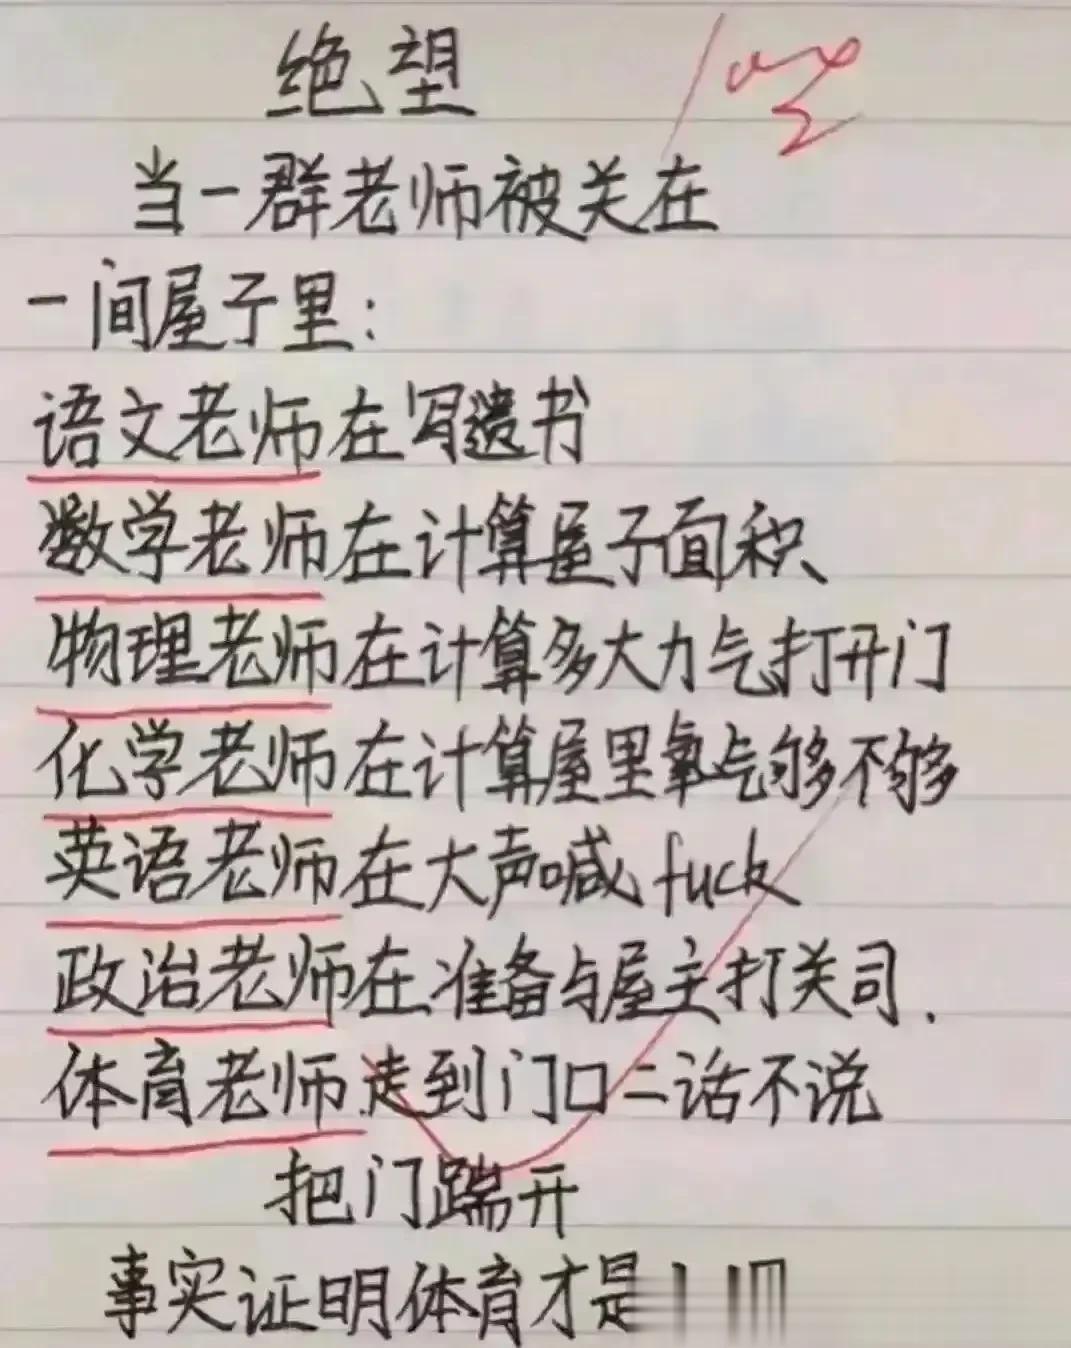 绝望
当一群老师被关在
一间屋子里:
语文老师在写遗书
数学老师在计算屋子面积
物理老师在计算多大力气打开门
化学老师在计算屋里氧气够不够
英语老师在大声喊 fuck
政治老师在准备与屋主打关司.
体育老师走到门口二话不说
把门踹开
事实证明体育才是